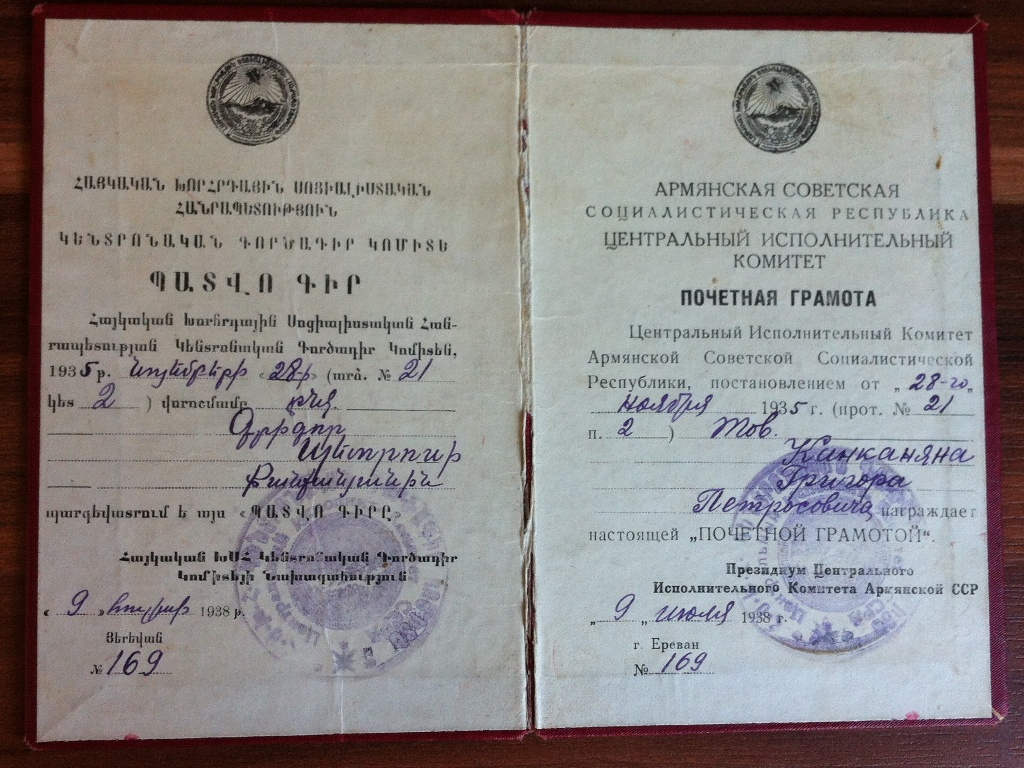 ՀԱՅԿԱԿԱՆ ԽՈՐՀՐԴԱՅԻՆ ՍՈՑԻԱԼԻՍՏԱԿԱՆ
ՀԱՆՐԱՊԵՏՈՒԹՅՈՒՆ
ԿԵՆՏՐՈՆԱԿԱՆ ԳՈՐԾԱԴԻՐ ԿՈՄԻՏԵ
ՊԱՏՎՈ ԳԻՐ
Հայկական Խորհրդային Սոցիալիստական Հան-
րապետության Կենտրոնական Գործադիր Կոմիտեն,
1935 թ. Նոյեմբերի «28-ի» (արձ. № 21
կետ 2 ) վորոշմամբ ընկ.
Գրիգոր
Պետրոսի
Քանքանյանին
պարգեվատրում է այս «ՊԱՏՎՈ ԳԻՐԸ»
Հայկական ԽՍՀ Կենտրոնական Գործադիր
Կոմիտեյի Նախագահություն
« 9 » հուլիսի 1938 թ.
Յերեվան
№ 169
АРМЯНСКАЯ СОВЕТСКАЯ
СОЦИАЛИСТИЧЕСКАЯ РЕСПУБЛИКА
ЦЕНТРАЛЬНЫЙ ИСПОЛНИТЕЛЬНЫЙ
КОМИТЕТ
ПОЧЕТНАЯ ГРАМОТА
Центральный Исполнительный Комитет
Армянской Советской Социалистической
Республики, постановлением от „ 28-го „
ноября 1935 г. (прот. № 21
п. 2 ) Тов.
Канканяна
Григора
Петросовича награждает
настоящей „ПОЧЕТНОЙ ГРАМОТОЙ“.
Президиум Центрального
Исполнительного Комитета Армянской ССР
„ 9 „ июля 1938 г.
г. Ереван
№ 169